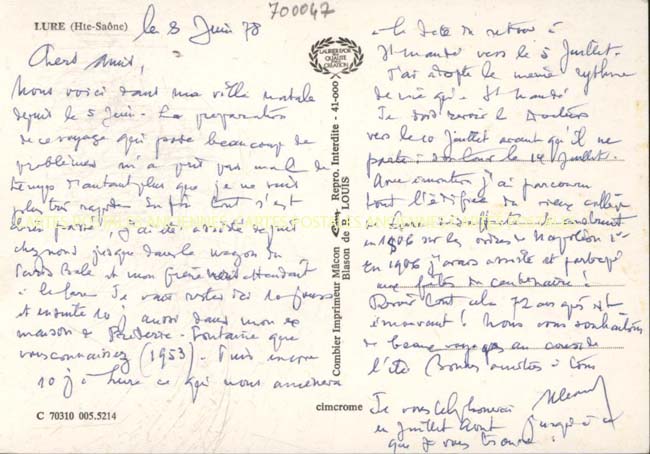 700047
LURE (Hte-Saône)
le 8 Juin 78
Chers amis,
Nous voici dans ma ville natale
depuis le 5 Juin. La preparation
de ce voyage qui pose beaucoup de
problèmes m'a pris pas mal de
temps d'autant plus que je ne suis
plus très rapide. En fin tout s'est
bien passé, j'ai été depuis
chez nous jusque dans le wagon du
Paris Bale et mon frère attendait
à la gare. Je vais rester ici 10 jours
et ensuite 10 j aussi dans mon ex
maison de Fontaine que
vous connaissez (1953). Puis encore
10 j à Lure ce qui nous amènera
C 70310 005.5214
LAURIER D'OR
DE LA
QUALITÉ
DE LA
CRÉATION
Combier Imprimeur Mâcon Repro. Interdite - 41-000
Blason de R. LOUIS
cimcrome
à la date de retour à
St mandé vers le 5 Juillet.
J'ai adopté le même rythme
de vie qu'à St Mandé
Je dois revoir le
vers le 10 Juillet avant qu'il ne
parte le 14 Juillet.
Avec émotion j'ai parcouru
tout l'édifice du vieux collège
de Lure
en 1806 sur les ordres de Napoléon 1er
En 1906 j'avais assisté et participé
aux fêtes du centenaire!
Revoir tout cela 72 ans après est
émouvant! Nous vous souhaitons
de beaux voyages au cours de
l'été Bonnes amitiés à tous
Je vous téléphonerai
en Juillet Aout jusqu'à ce
que je vous trouve!